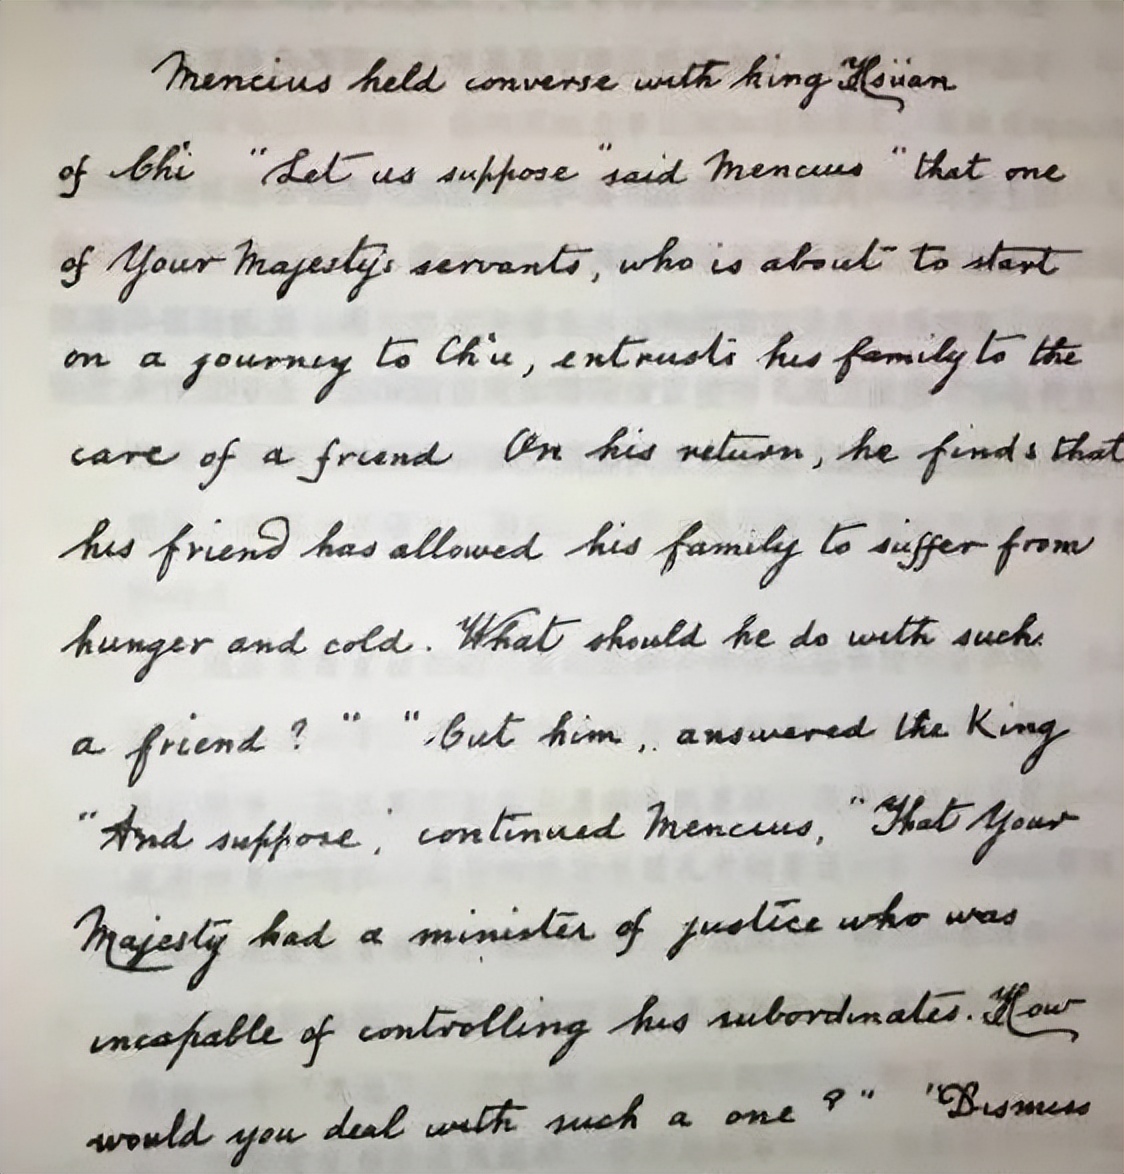 Mencius held converse with king Hsüan
of Ch'i "Let us suppose" said Mencius "that one
of Your Majesty's servants, who is about to start
on a journey to Ch'u, entrusts his family to the
care of a friend On his return, he finds that
his friend has allowed his family to suffer from
hunger and cold. What should he do with such
a friend?" "Cut him, answered the King
"And suppose", continued Mencius, "That Your
Majesty had a minister of justice who was
incapable of controlling his subordinates. How
would you deal with such a one?" "Dismiss